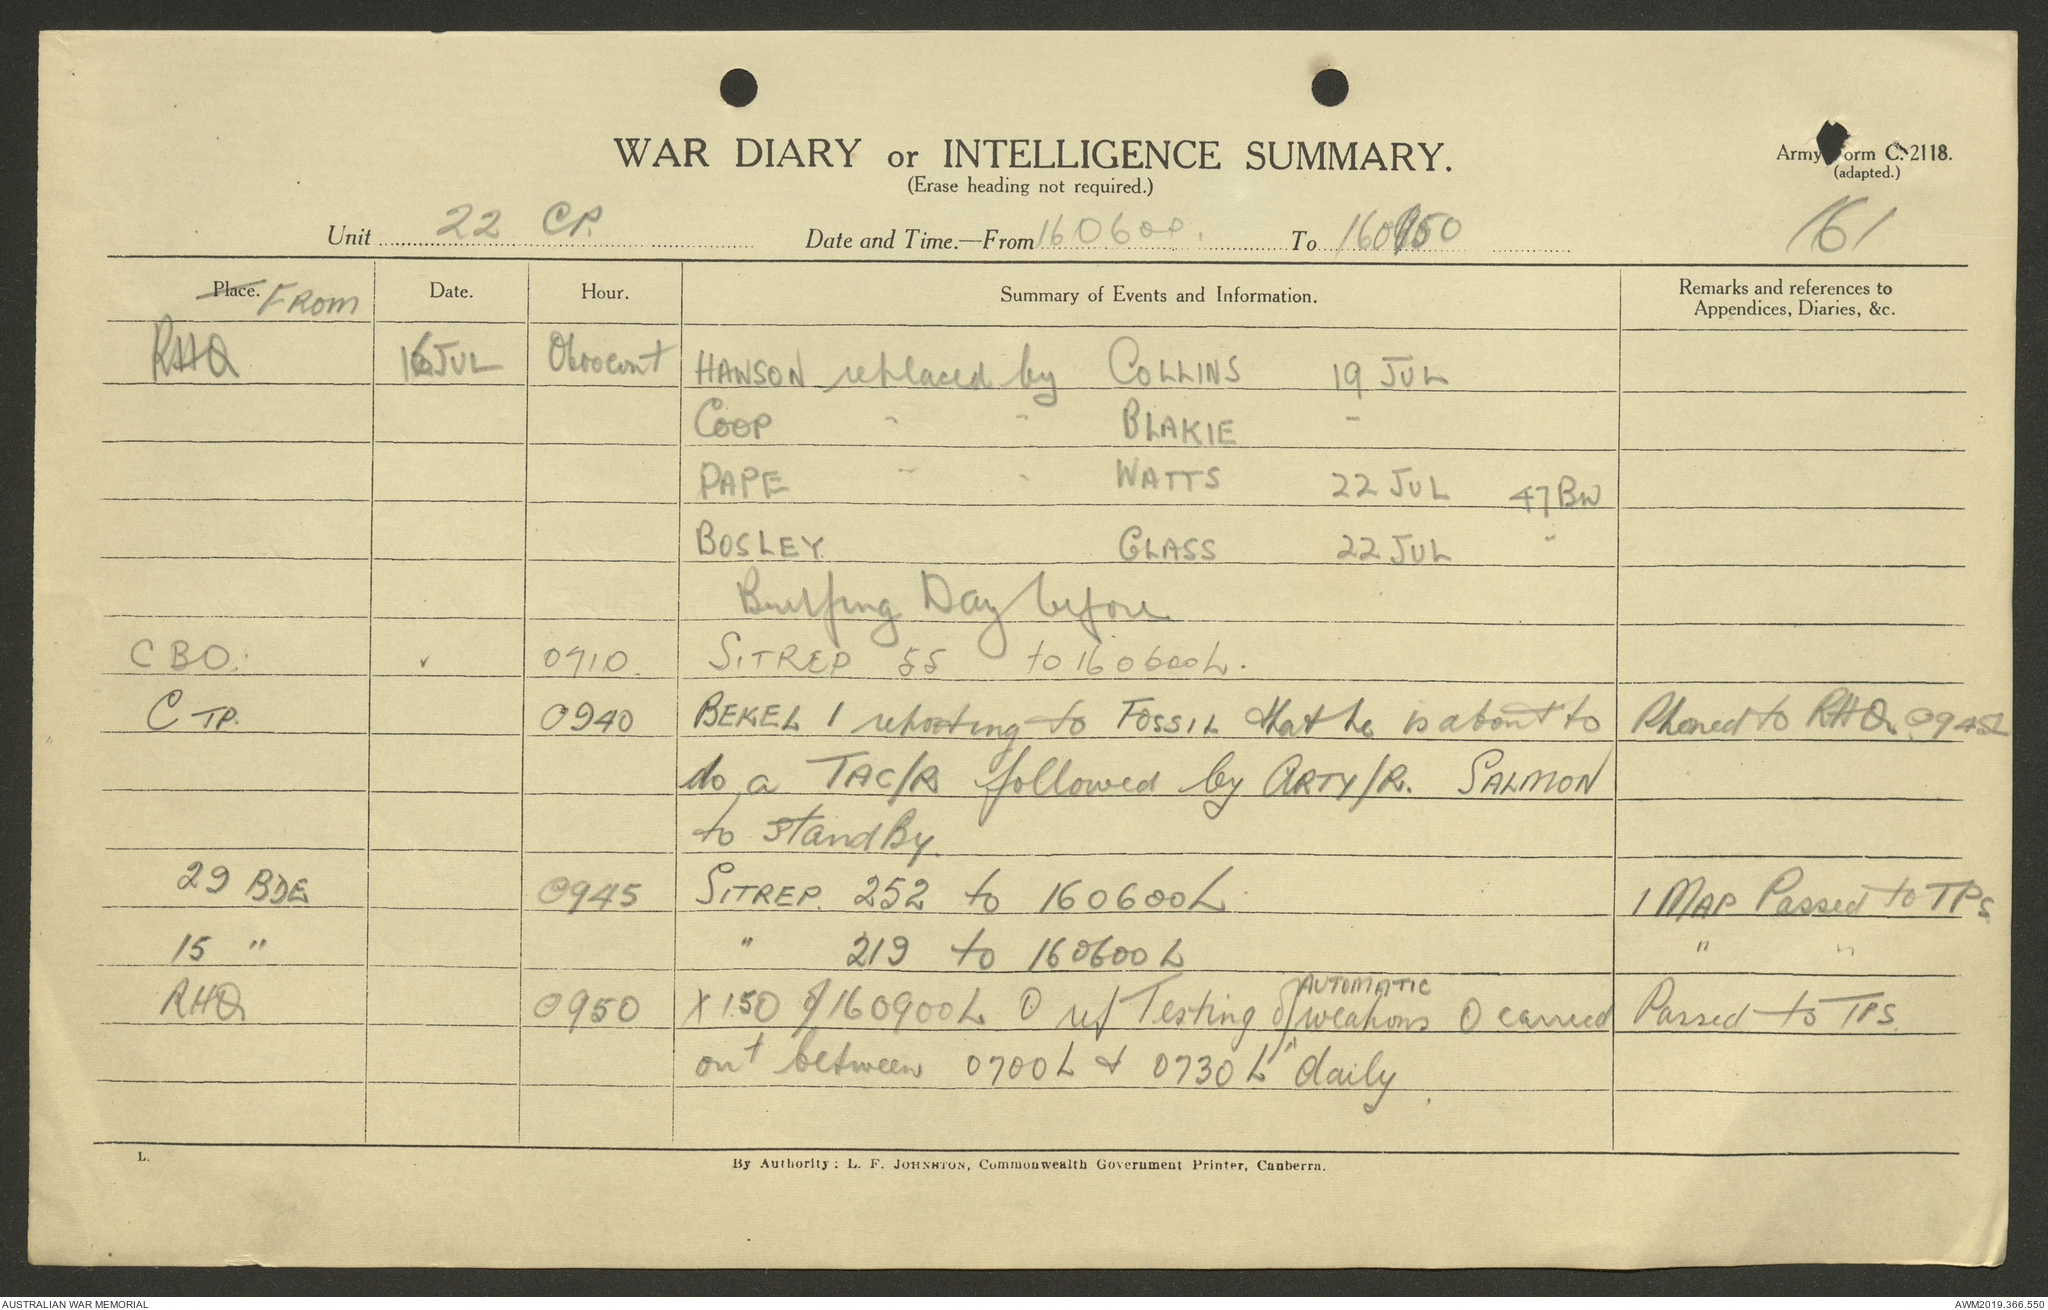 WAR DIARY or INTELLIGENCE SUMMARY.
(Erase heading not required.)
Army Form C. 2118.
(adapted.)
161
Unit 22 CP. Date and Time.—From 160600. To 160950
Place. FROM Date. Hour. Summary of Events and Information. Remarks and references to Appendices, Diaries, &c.
RHQ 16 JUL 0600 cont HANSON replaced by COLLINS 19 JUL
COOP " " BLAKIE "
PAPE " " WATTS 22 JUL 47 BN
BOSLEY GLASS 22 JUL "
Briefing Day before
CBO. 0710. SITREP 55 to 160600L.
C TP. 0940 BEKEL 1 reporting to FOSSIL that he is about to Phoned to RHQ 0945L
do a TAC/R followed by ARTY/R. SALMON
to stand By.
29 BDE 0945 SITREP. 252 to 160600L 1 MAP Passed to TPS
15 " " 219 to 160600L " "
RHQ 0950 X150 of 160900L O ref Testing of AUTOMATIC weapons O carried Passed to TPS.
out between 0700L & 0730L "daily
L.
By Authority: L. F. JOHNSTON, Commonwealth Government Printer, Canberra.
AUSTRALIAN WAR MEMORIAL
AWM2019.366.550